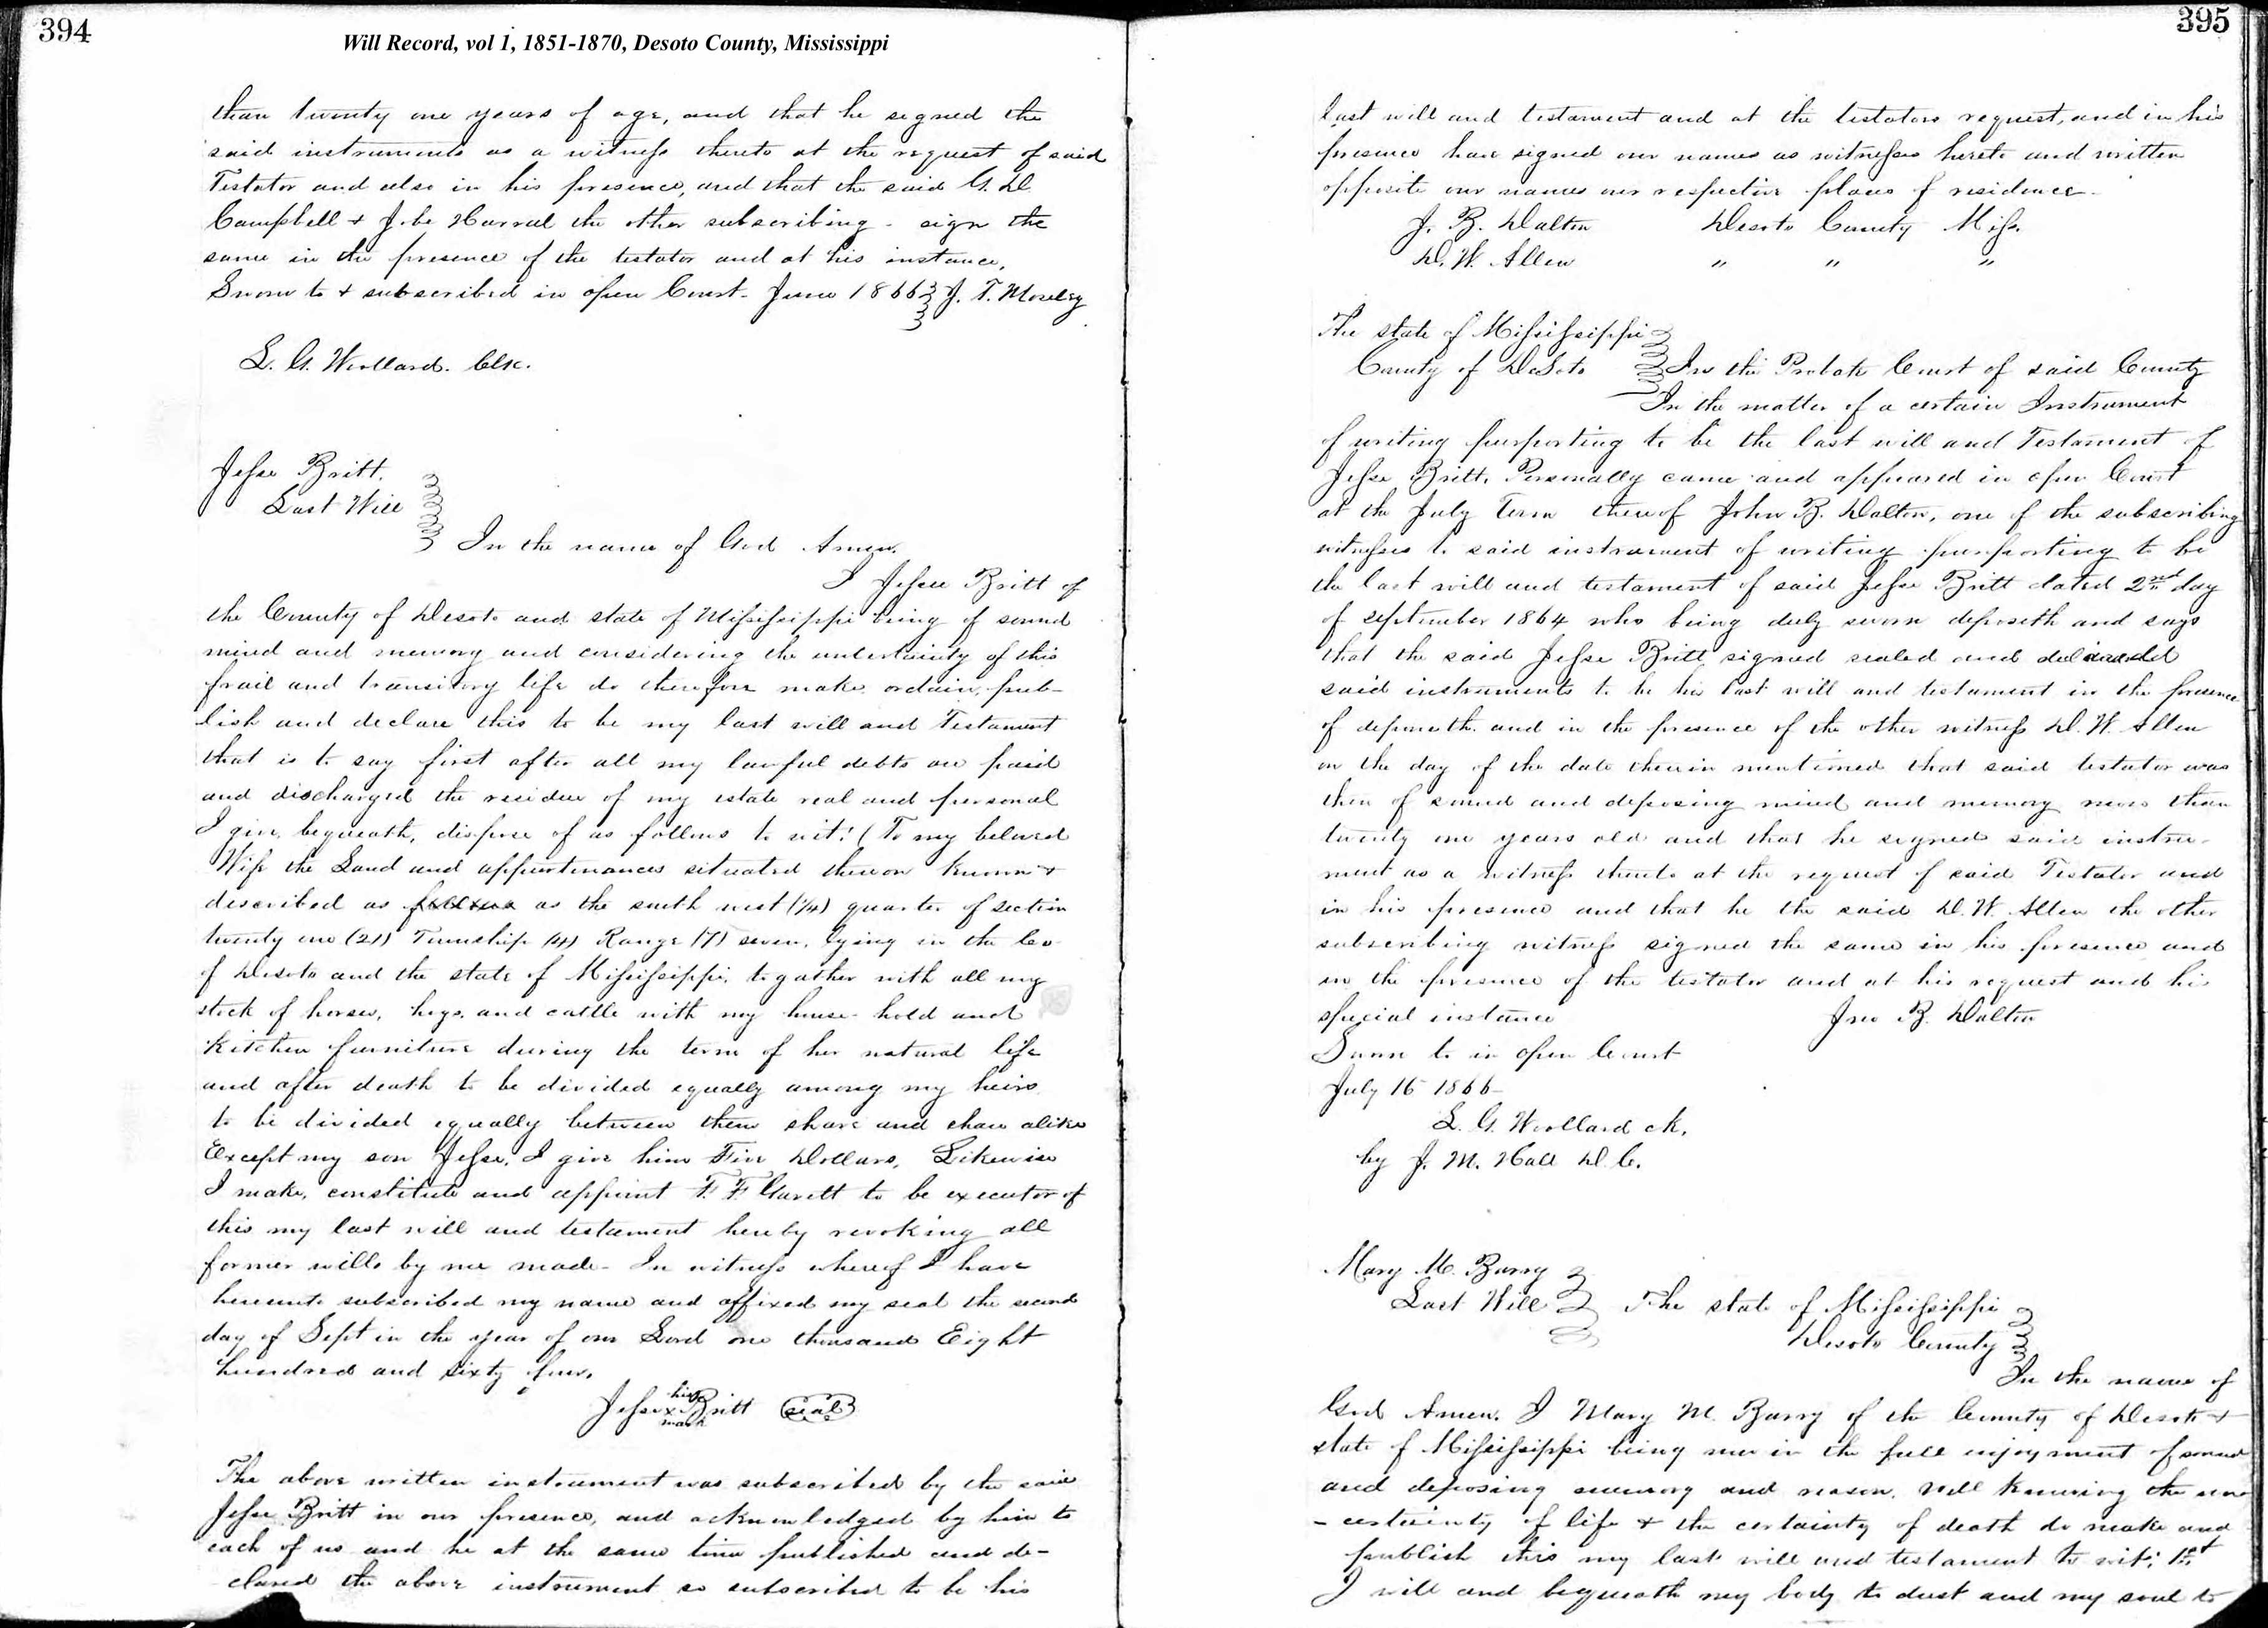 394
Will Record, vol 1, 1851-1870, Desoto County, Mississippi
than twenty one years of age, and that he signed the
said instruments as a witness thereto at the request of said
Testator and also in his presence, and that the said G. D.
Campbell + Harral the other subscribing - sign the
same in the presence of the testator and at his instance,
Sworn to + subscribed in open Court - June 1866 J. T. Moseley
L. G. Woollard. Clk.
Jesse Britt.
Last Will
In the name of God Amen.
I Jesse Britt of
the County of Desoto and state of Mississippi being of sound
mind and memory and considering the uncertainty of this
frail and transitory life do therefore make, ordain, pub-
lish and declare this to be my last will and Testament
that is to say first after all my lawful debts are paid
and discharged the residue of my estate real and personal
I give, bequeath, dispose of as follows to wit: (To my beloved
Wife the Land and appurtenances situated thereon known +
described as follows as the south west (1/4) quarter of section
twenty one (21) Township (4) Range (7) seven, lying in the Co
of Desoto and the state of Mississippi, togather with all my
stock of horses, hogs, and cattle with my house-hold and
Kitchen furniture during the term of her natural life
and after death to be divided equally among my heirs
to be divided equally between them share and share alike
Except my son Jesse, I give him Five Dollars, Likewise
I make, constitute and appoint F. F. Garett to be executor of
this my last will and testament hereby revoking all
former wills by me made - In witness whereof I have
hereunto subscribed my name and affixed my seal the second
day of Sept in the year of our Lord one thousand Eight
hundred and sixty four.
his
Jesse x Britt seal
mark
The above written instrument was subscribed by the said
Jesse Britt in our presence, and acknowledged by him to
each of us and he at the same time published and de-
clared the above instrument so subscribed to be his
395
last will and testament and at the testators request, and in his
presence have signed our names as witnesses hereto and written
opposite our names our respective places of residence -
J. B. Dalton Desoto County Miss.
D. W. Allen " " "
The state of Mississippi
County of DeSoto In the Probate Court of said County
In the matter of a certain Instrument
of writing purporting to be the last will and Testament of
Jesse Britt, Personally came and appeared in open Court
at the July Term thereof John B. Dalton, one of the subscribing
witnesses to said instrument of writing purporting to be
the last will and testament of said Jesse Britt dated 2nd day
of September 1864 who being duly sworn deposeth and says
that the said Jesse Britt signed sealed and
said instruments to be his last will and testament in the presence
of deponeth and in the presence of the other witness D. W. Allen
on the day of the date therein mentioned that said testator was
then of sound and deposing mind and memory more than
twenty one years old and that he signed said instru-
ment as a witness thereto at the request of said Testator and
in his presence and that he the said D. W. Allen the other
subscribing witness signed the same in his presence and
in the presence of the testator and at his request and his
special instance Jno B. Dalton
Sworn to in open Court
July 16 1866 -
L. G. Woollard ck.
by J. M. Hall D. C.
Mary M. Barry
Last Will The state of Mississippi
Desoto County
In the name of
God Amen. I Mary M. Barry of the County of Desoto +
state of Mississippi being now in the full enjoyment of sound
and deposing memory and reason. Well knowing the un
- certainty of life + the certainty of death do make and
publish this my last will and testament to wit; 1st
I will and bequeath my body to dust and my soul to